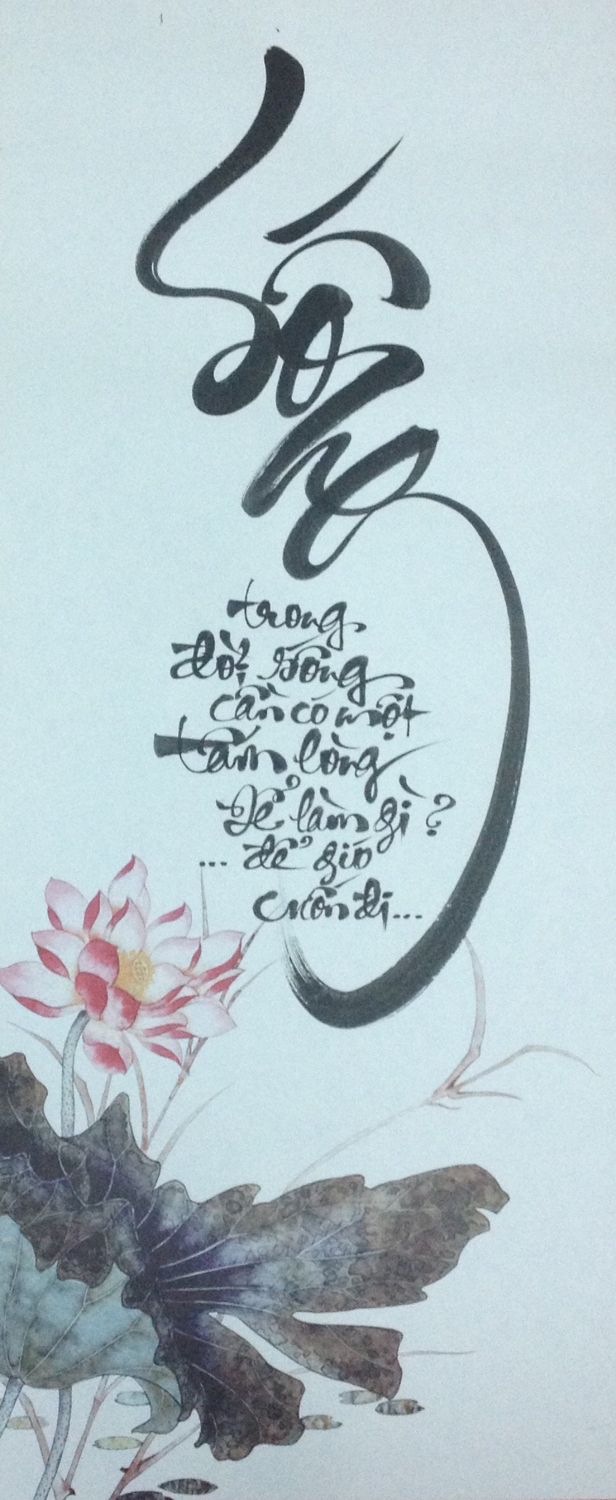 Sống
trong
đời sống
cần có một
tấm lòng
Để làm gì?
... để gió
cuốn đi...